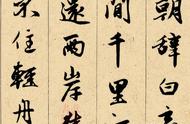 朝辭白
間千里
還兩岸
不住輕舟